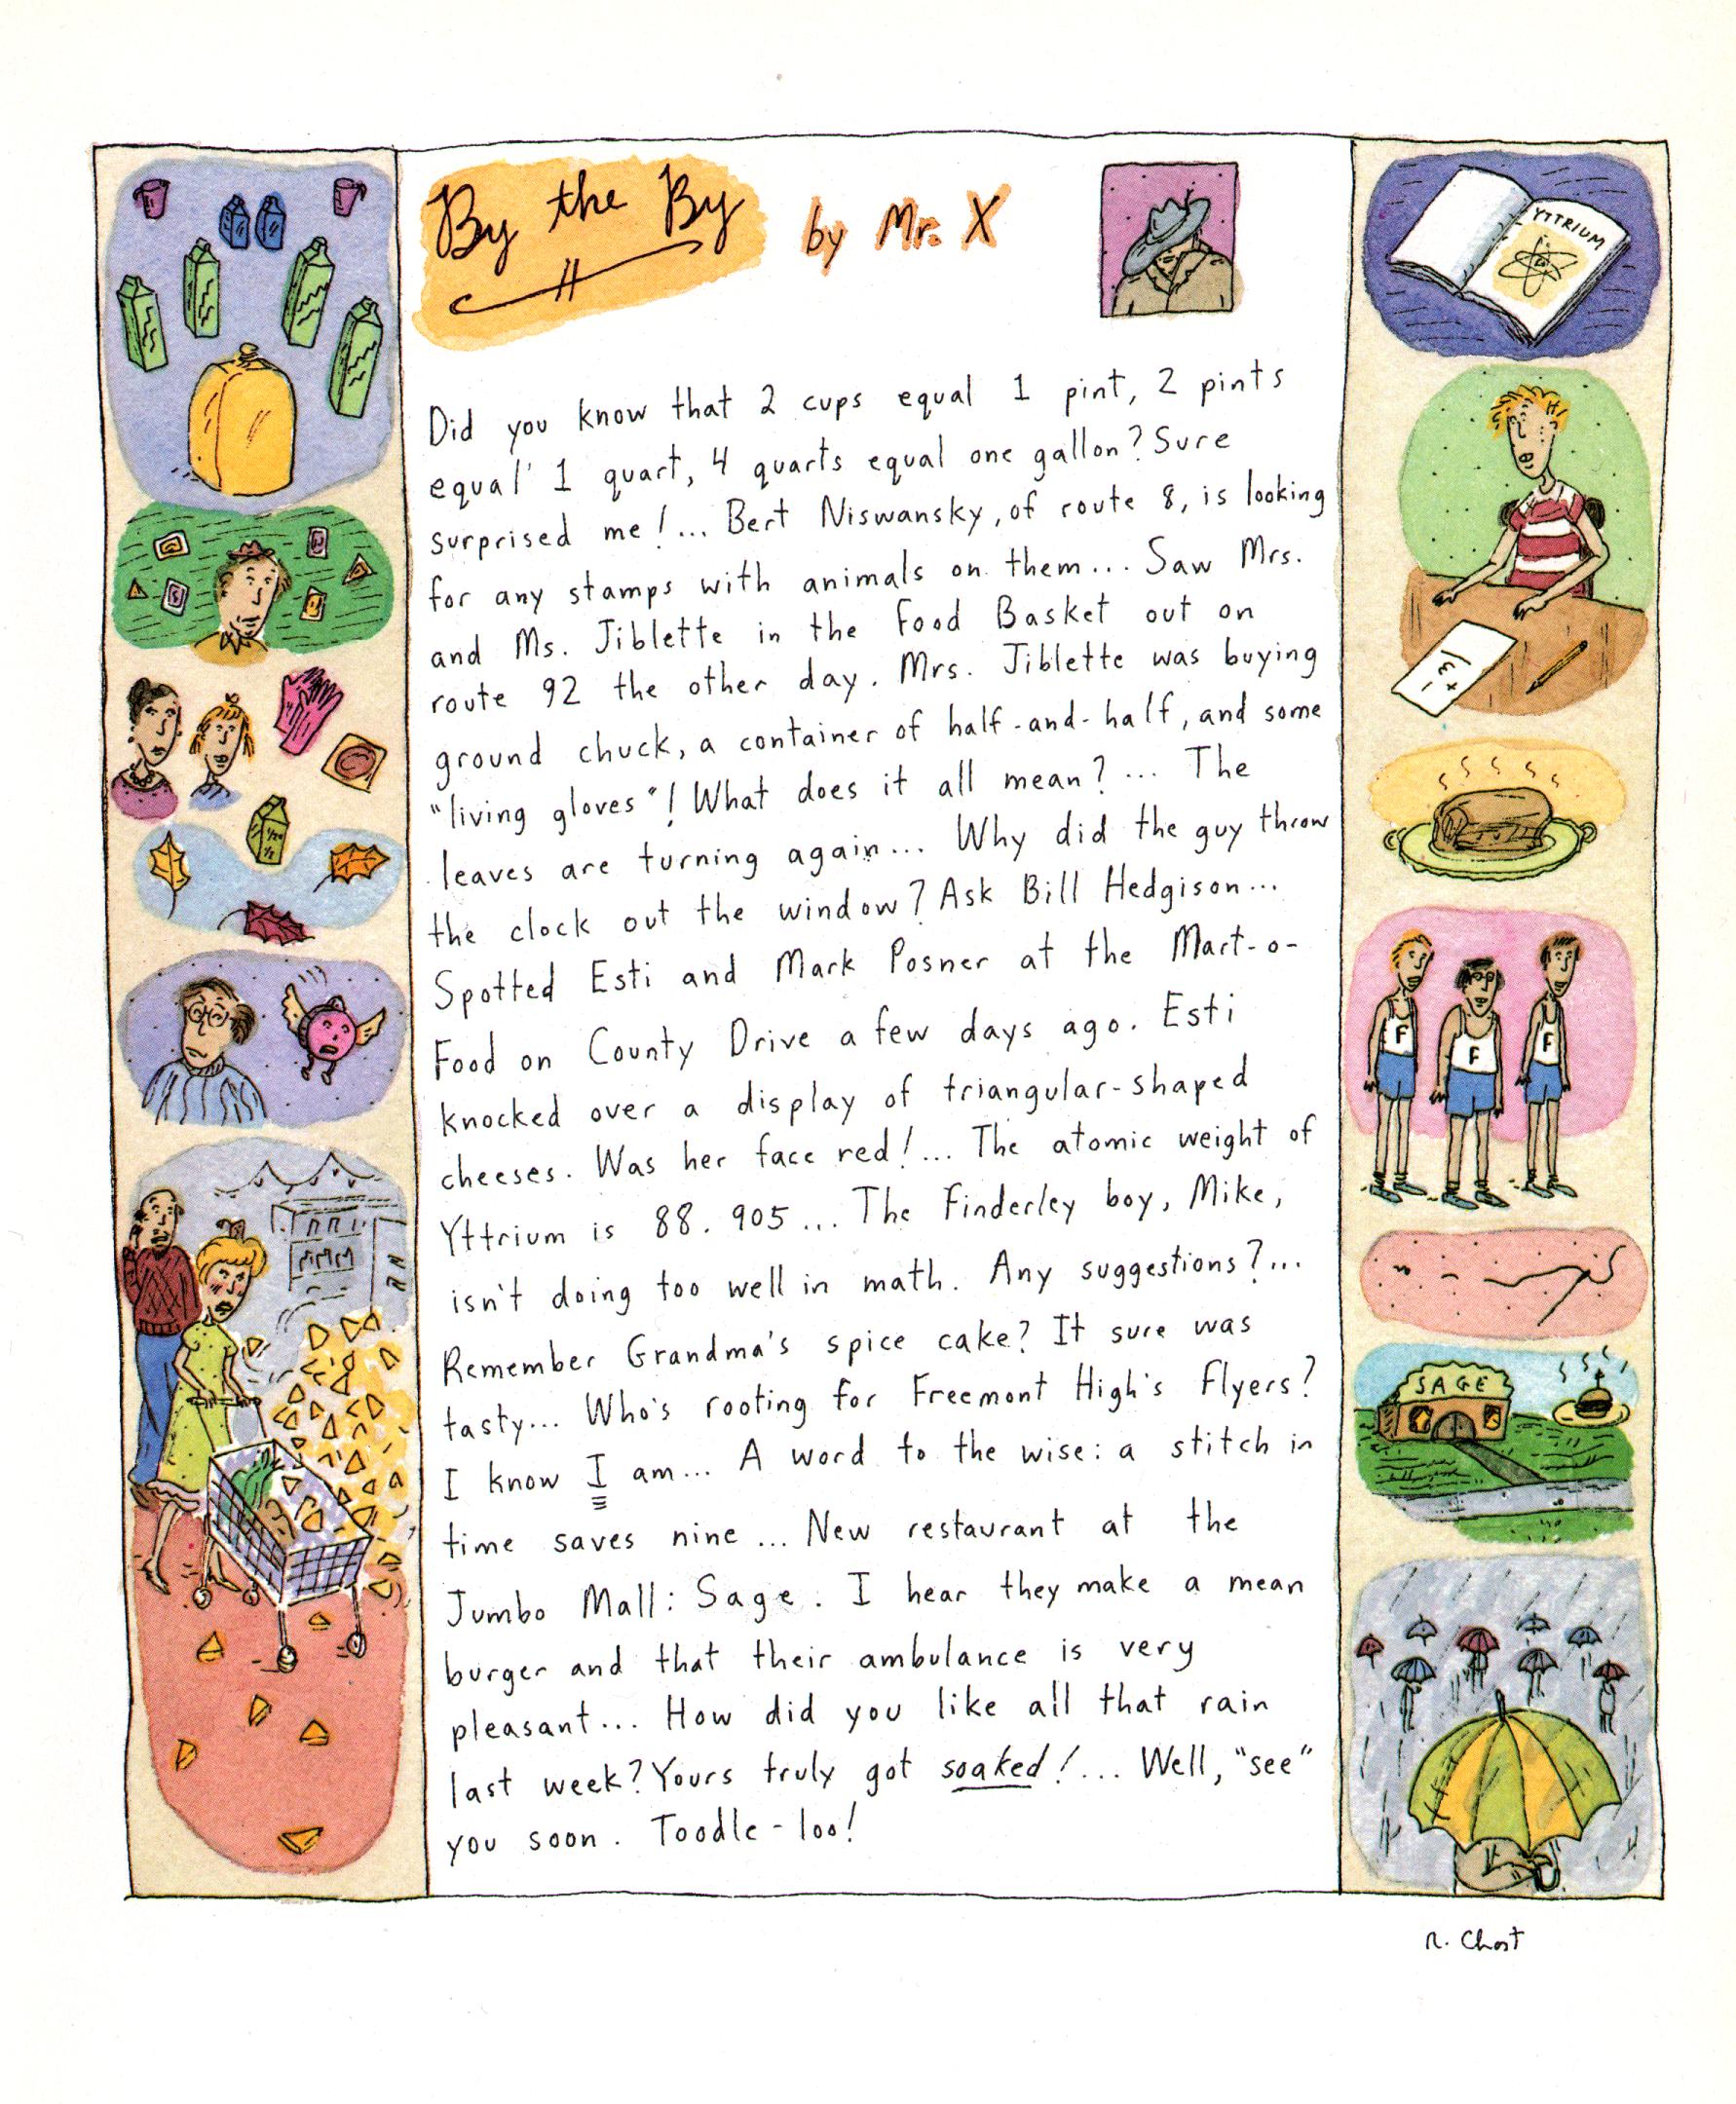 By the By
by Mr. X
Did you know that 2 cups equal 1 pint, 2 pints
equal 1 quart, 4 quarts equal one gallon? Sure
surprised me!... Bert Niswansky, of route 8, is looking
for any stamps with animals on them... Saw Mrs.
and Ms. Jiblette in the Food Basket out on
route 92 the other day. Mrs. Jiblette was buying
ground chuck, a container of half-and-half, and some
"living gloves"! What does it all mean?... The
leaves are turning again... Why did the guy throw
the clock out the window? Ask Bill Hedgison...
Spotted Esti and Mark Posner at the Mart-o-
Food on County Drive a few days ago. Esti
knocked over a display of triangular-shaped
cheeses. Was her face red!... The atomic weight of
Yttrium is 88.905... The Finderley boy, Mike,
isn't doing too well in math. Any suggestions?...
Remember Grandma's spice cake? It sure was
tasty... Who's rooting for Freemont High's Flyers?
I know I am... A word to the wise: a stitch in
time saves nine... New restaurant at the
Jumbo Mall: Sage. I hear they make a mean
burger and that their ambulance is very
pleasant... How did you like all that rain
last week? Yours truly got soaked!... Well, "see"
you soon. Toodle-loo!
YTTRIUM
F
F
F
SAGE
R. Chast